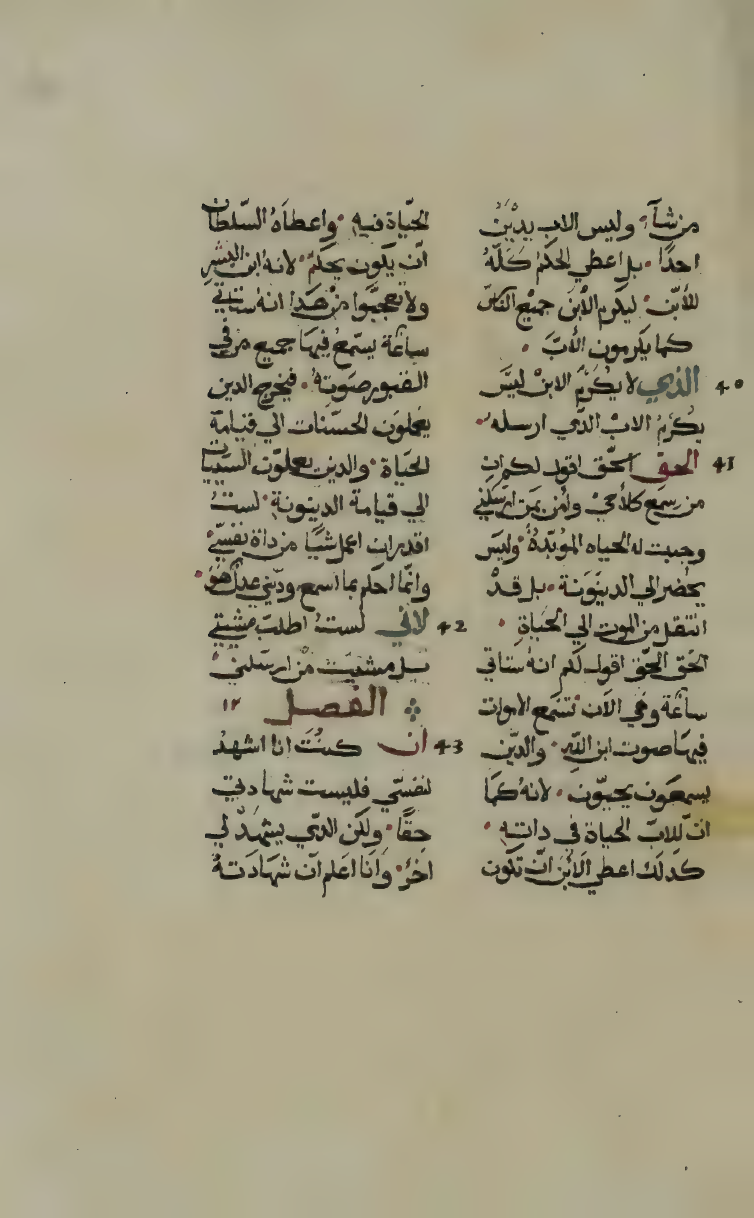 من شآ٠ وليس الاب يدين
احدًا٠ بل اعطي الحكم كلّهُ
للأبن٠ ليكرم الأبن جميع الناس
كما يكرمون الأب ٠
40 الذي لا يكرم الابن ليس
يكرم الاب الدي ارسله٠
41 الحق الحق اقول لكم ان
من يسمع كلامي وأمن بمن ارسلني
وجبت له الحياه الموبدة٠ وليس
يحضر الي الدينونة٠ بل قد
انتقل من الموت الي الحياة ٠
الحق الحق اقول لكم انه ستاتي
ساعة وهي الآن تسمع الاموات
فيها صوت ابن الله٠ والدين
يسمعون يحيون٠ لانه كما
ان للاب الحياة في داته ٠
كدلك اعطي الابن ان تكون
الحياة فيه٠ واعطاه السلطان
ان يكون يحكم٠ لانه ابن البشر
ولا تعجبوا من هدا انه ستاتي
ساعة يسمع فيها جميع من في
القبور صوته٠ فيخرج الدين
يعملون الحسنات الي قيامة
الحياة٠ والدين يعملون السيات
الي قيامة الدينونة٠ لست
اقدر ان اعمل شيا من داة نفسي
وانما احكم بما اسمع وديني عدل هو٠
42 لاني لست اطلب مشيتي
بل مشيت من ارسلني
الفصل ١٢
43 ان كنت انا اشهد
لنفسي فليست شهادتي
حقا٠ ولكن الدي يشهد لي
اخر٠ وانا اعلم ان شهادته